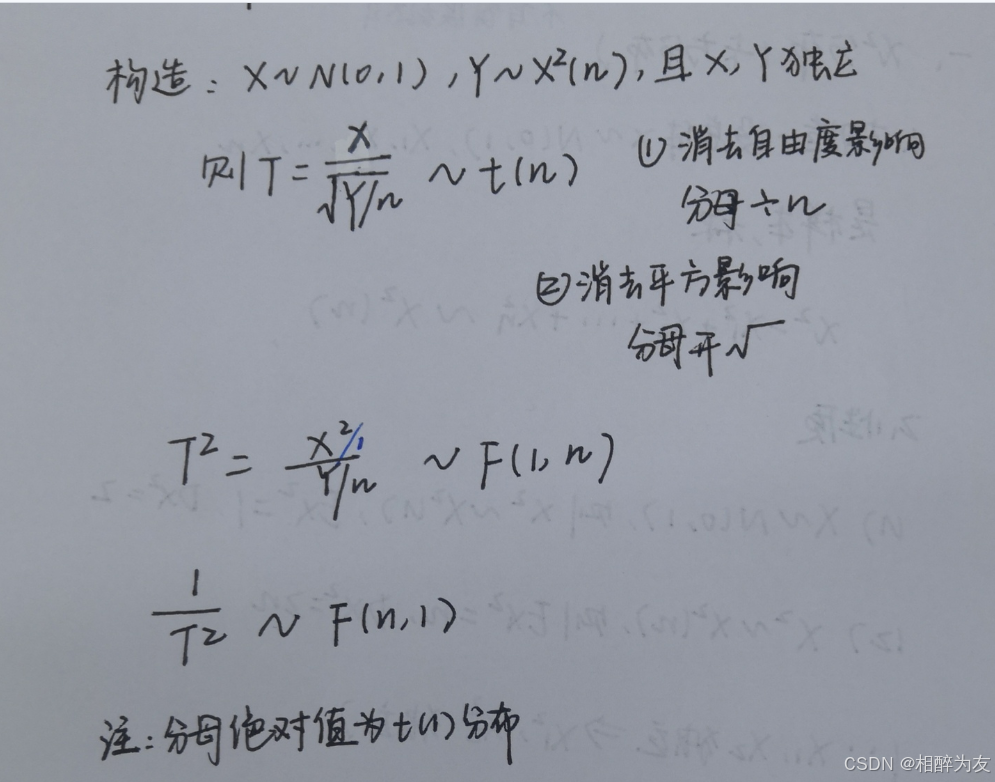 构造：X～N(0,1)，Y～X²(n)，且X，Y独立
则T=X/√(Y/n) ～t(n)
①消去自由度影响
分母÷n
②消去平方影响
分母开√
T²=(X²/1)/(Y/n) ～F(1,n)
1/T² ～F(n,1)
注：分母绝对值为t(1)分布
CSDN @相醉为友